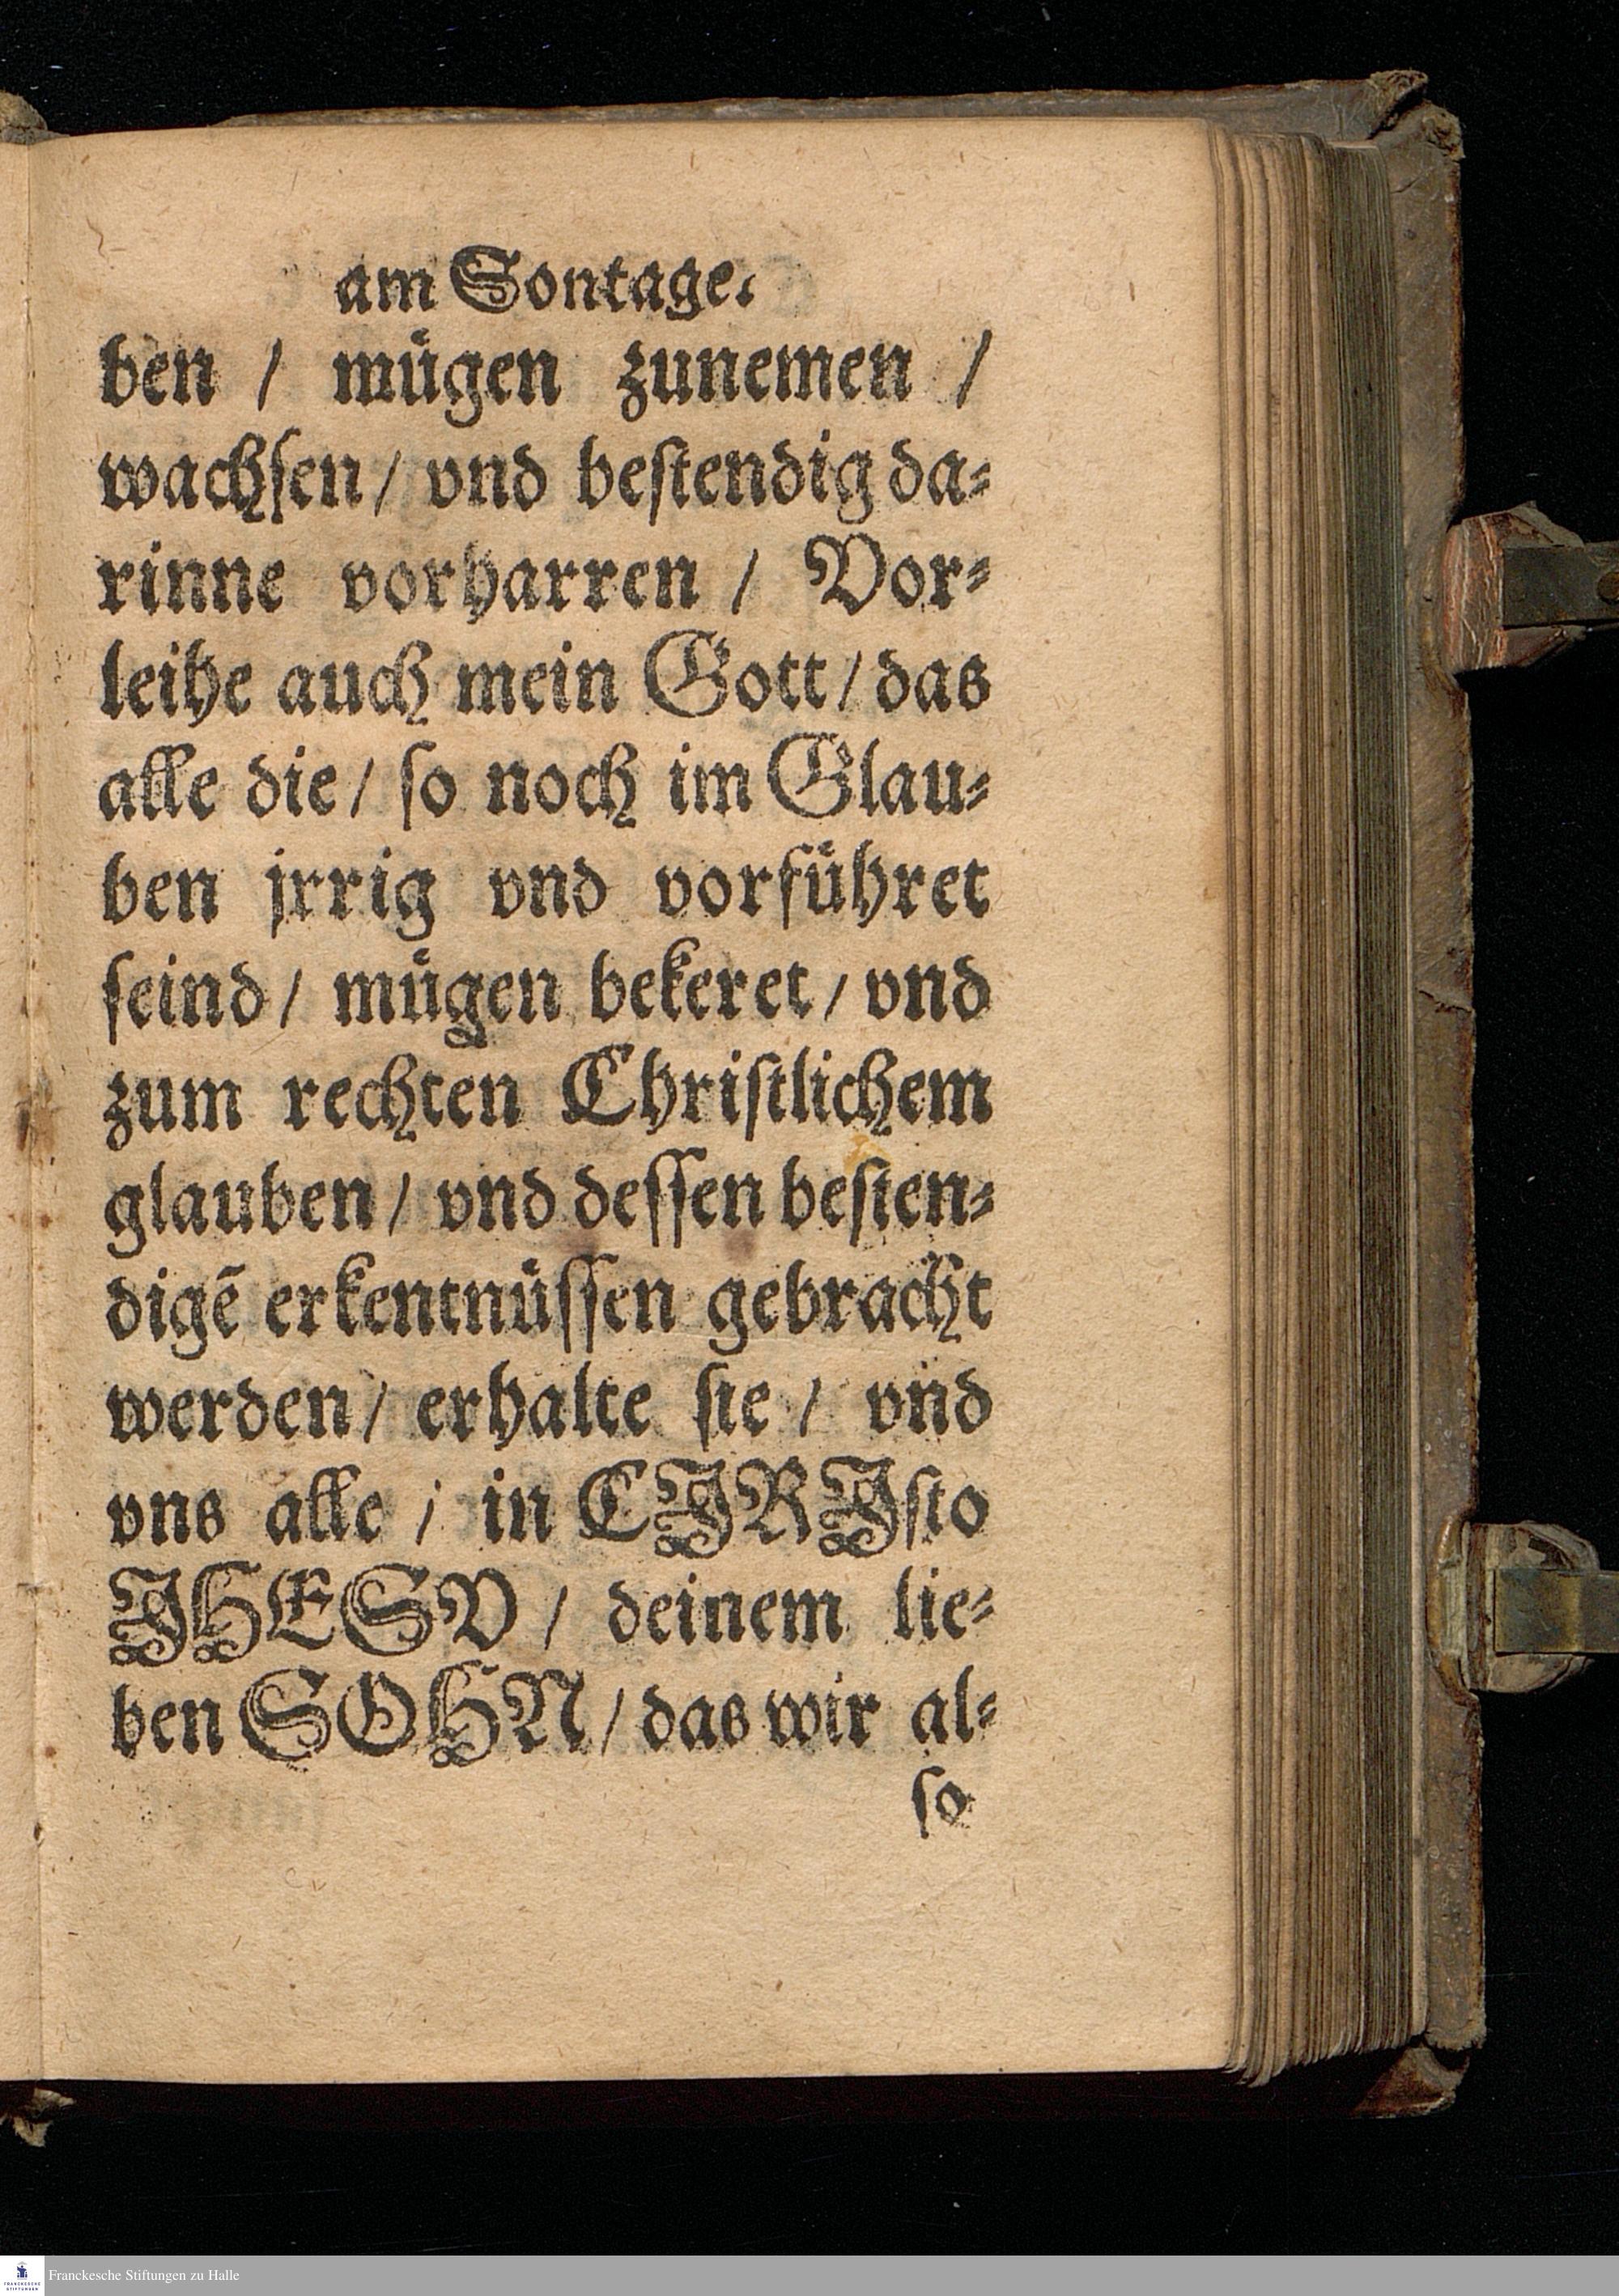 am Sontage.
ben / mügen zunemen /
wachſen / vnd beſtendig da⸗
rinne vorharren / Vor⸗
leihe auch mein Gott / das
alle die / ſo noch im Glau⸗
ben jrrig vnd vorführet
ſeind / mügen bekeret / vnd
zum rechten Chriſtlichem
glauben / vnd deſſen beſten⸗
digẽ erkentnüſſen gebracht
werden / erhalte ſie / vnd
vns alle / in CJRJſto
JHESV / deinem lie⸗
ben SOHN / das wir al⸗
ſo
Franckesche Stiftungen zu Halle
FRANCKESCHE
STIFTUNGEN